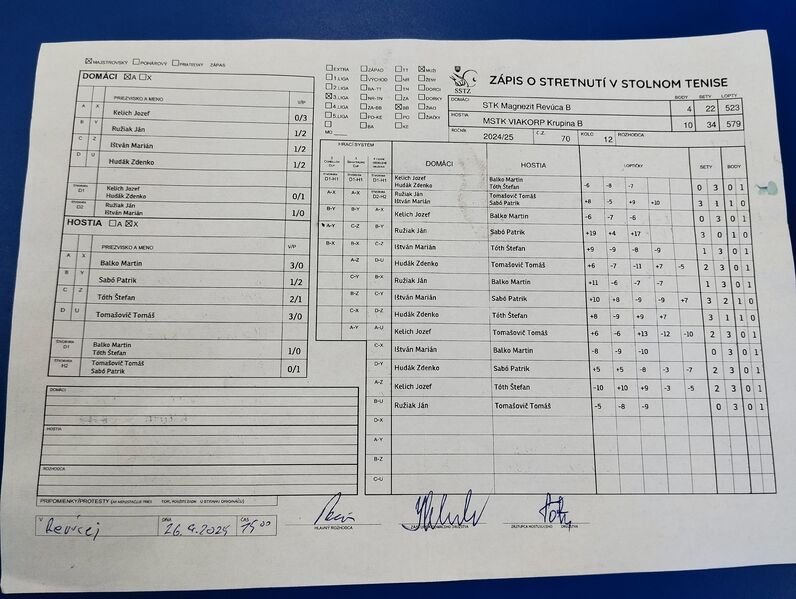 ☒ MAJSTROVSKÝ ☐ POHÁROVÝ ☐ PRIATEĽSKÝ ZÁPAS
DOMÁCI ☒A ☐X
PRIEZVISKO A MENO V/P
A X Kelich Jozef 0/3
B Y Ružiak Ján 1/2
C Z Ištván Marián 1/2
D U Hudák Zdenko 1/2
ŠTVORHRA D1 Kelich Jozef
Hudák Zdenko 0/1
ŠTVORHRA D2 Ružiak Ján
Ištván Marián 1/0
HOSTIA ☐A ☒X
PRIEZVISKO A MENO V/P
A X Balko Martin 3/0
B Y Sabó Patrik 1/2
C Z Tóth Štefan 2/1
D U Tomašovič Tomáš 3/0
ŠTVORHRA Balko Martin
Tóth Štefan 1/0
ŠTVORHRA H2 Tomašovič Tomáš
Sabó Patrik 0/1
DOMÁCI
HOSTIA
ROZHODCA
PRIPOMIENKY/PROTESTY
☐ EXTRA ☐ ZÁPAD ☐ TT ☒ MUŽI
☐ 1. LIGA ☐ VÝCHOD ☐ NR ☐ ŽENY
☐ 2. LIGA ☐ BA-TT ☐ TN ☐ DORCI
☒ 3. LIGA ☐ NR-TN ☐ ZA ☐ DORKY
☐ 4. LIGA ☐ ZA-BB ☒ BB ☐ ŽIACI
☐ 5. LIGA ☐ PO-KE ☐ PO ☐ ŽIAČKY
☐ ☐ BA ☐ KE
MO
SSTZ
ZÁPIS O STRETNUTÍ V STOLNOM TENISE
BODY SETY LOPTY
DOMÁCI STK Magnezit Revúca B 4 22 523
HOSTIA MSTK VIAKORP Krupina B 10 34 579
ROČNÍK 2024/25 Č.Z. 70 KOLO 12 ROZHODCA
HRACÍ SYSTÉM
DOMÁCI HOSTIA LOPTIČKY SETY BODY
D1-H1 D1-H1 D1-H1 Kelich Jozef Balko Martin
Hudák Zdenko Tóth Štefan -6 -8 -7 0 3 0 1
A-X A-X D2-H2 Ružiak Ján Tomašovič Tomáš
Ištván Marián Sabó Patrik +8 -5 +9 +10 3 1 1 0
B-Y B-Y A-X Kelich Jozef Balko Martin -6 -7 -6 0 3 0 1
A-Y C-Z B-Y Ružiak Ján Sabó Patrik +19 +4 +17 3 0 1 0
B-X B-X C-Z Ištván Marián Tóth Štefan +9 -9 -8 -9 1 3 0 1
A-Z D-U Hudák Zdenko Tomašovič Tomáš +6 -7 -11 +7 -5 2 3 0 1
C-Y B-X Ružiak Ján Balko Martin +11 -6 -7 -7 1 3 0 1
B-Z C-Y Ištván Marián Sabó Patrik +10 +8 -9 -9 +7 3 2 1 0
C-X D-Z Hudák Zdenko Tóth Štefan +8 -9 +9 +7 3 1 1 0
A-Y A-U Kelich Jozef Tomašovič Tomáš +6 -6 +13 -12 -10 2 3 0 1
C-X Ištván Marián Balko Martin -8 -9 -10 0 3 0 1
D-Y Hudák Zdenko Sabó Patrik +5 +5 -8 -3 -7 2 3 0 1
A-Z Kelich Jozef Tóth Štefan -10 +10 +9 -3 -5 2 3 0 1
B-U Ružiak Ján Tomašovič Tomáš -5 -8 -9 0 3 0 1
D-X
A-Y
B-Z
C-U
V Revúcej DŇA 26.4.2025 ČAS 15 00
HLAVNÝ ROZHODCA